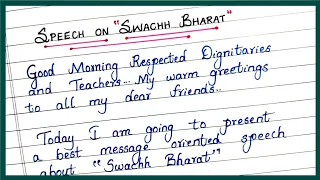 SPEECH ON "SWACHH BHARAT"
Good Morning Respected Dignitaries
and Teachers... My warm greetings
to all my dear friends..
Today I am going to present
a best message oriented speech
about "Swachh Bharat"